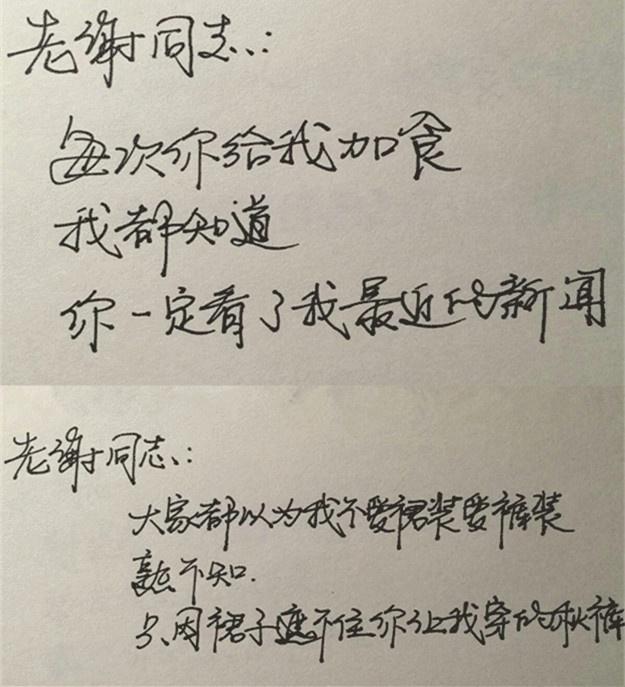 老谢同志:
每次你给我加食
我都知道
你一定看了我最近的新闻
老谢同志:
大家都以为我不爱裙装爱裤装
孰不知.
只因裙子遮不住你让我穿的秋裤